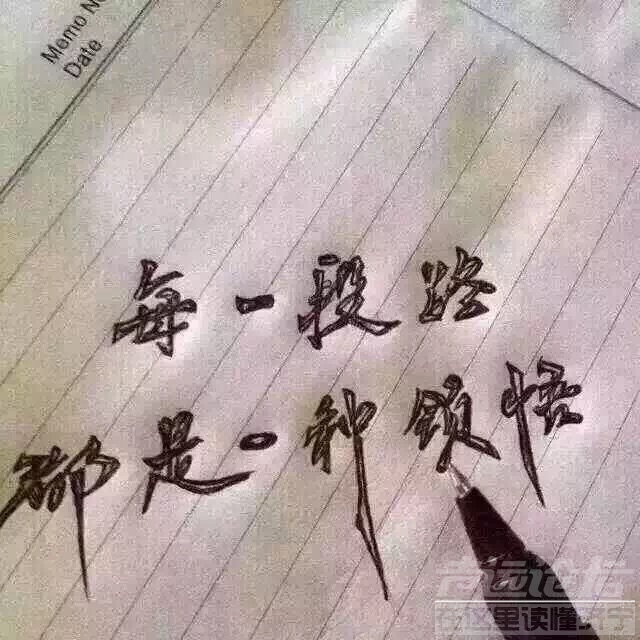 Memo No
Date
每一段路
都是一种领悟
在这里读懂济宁